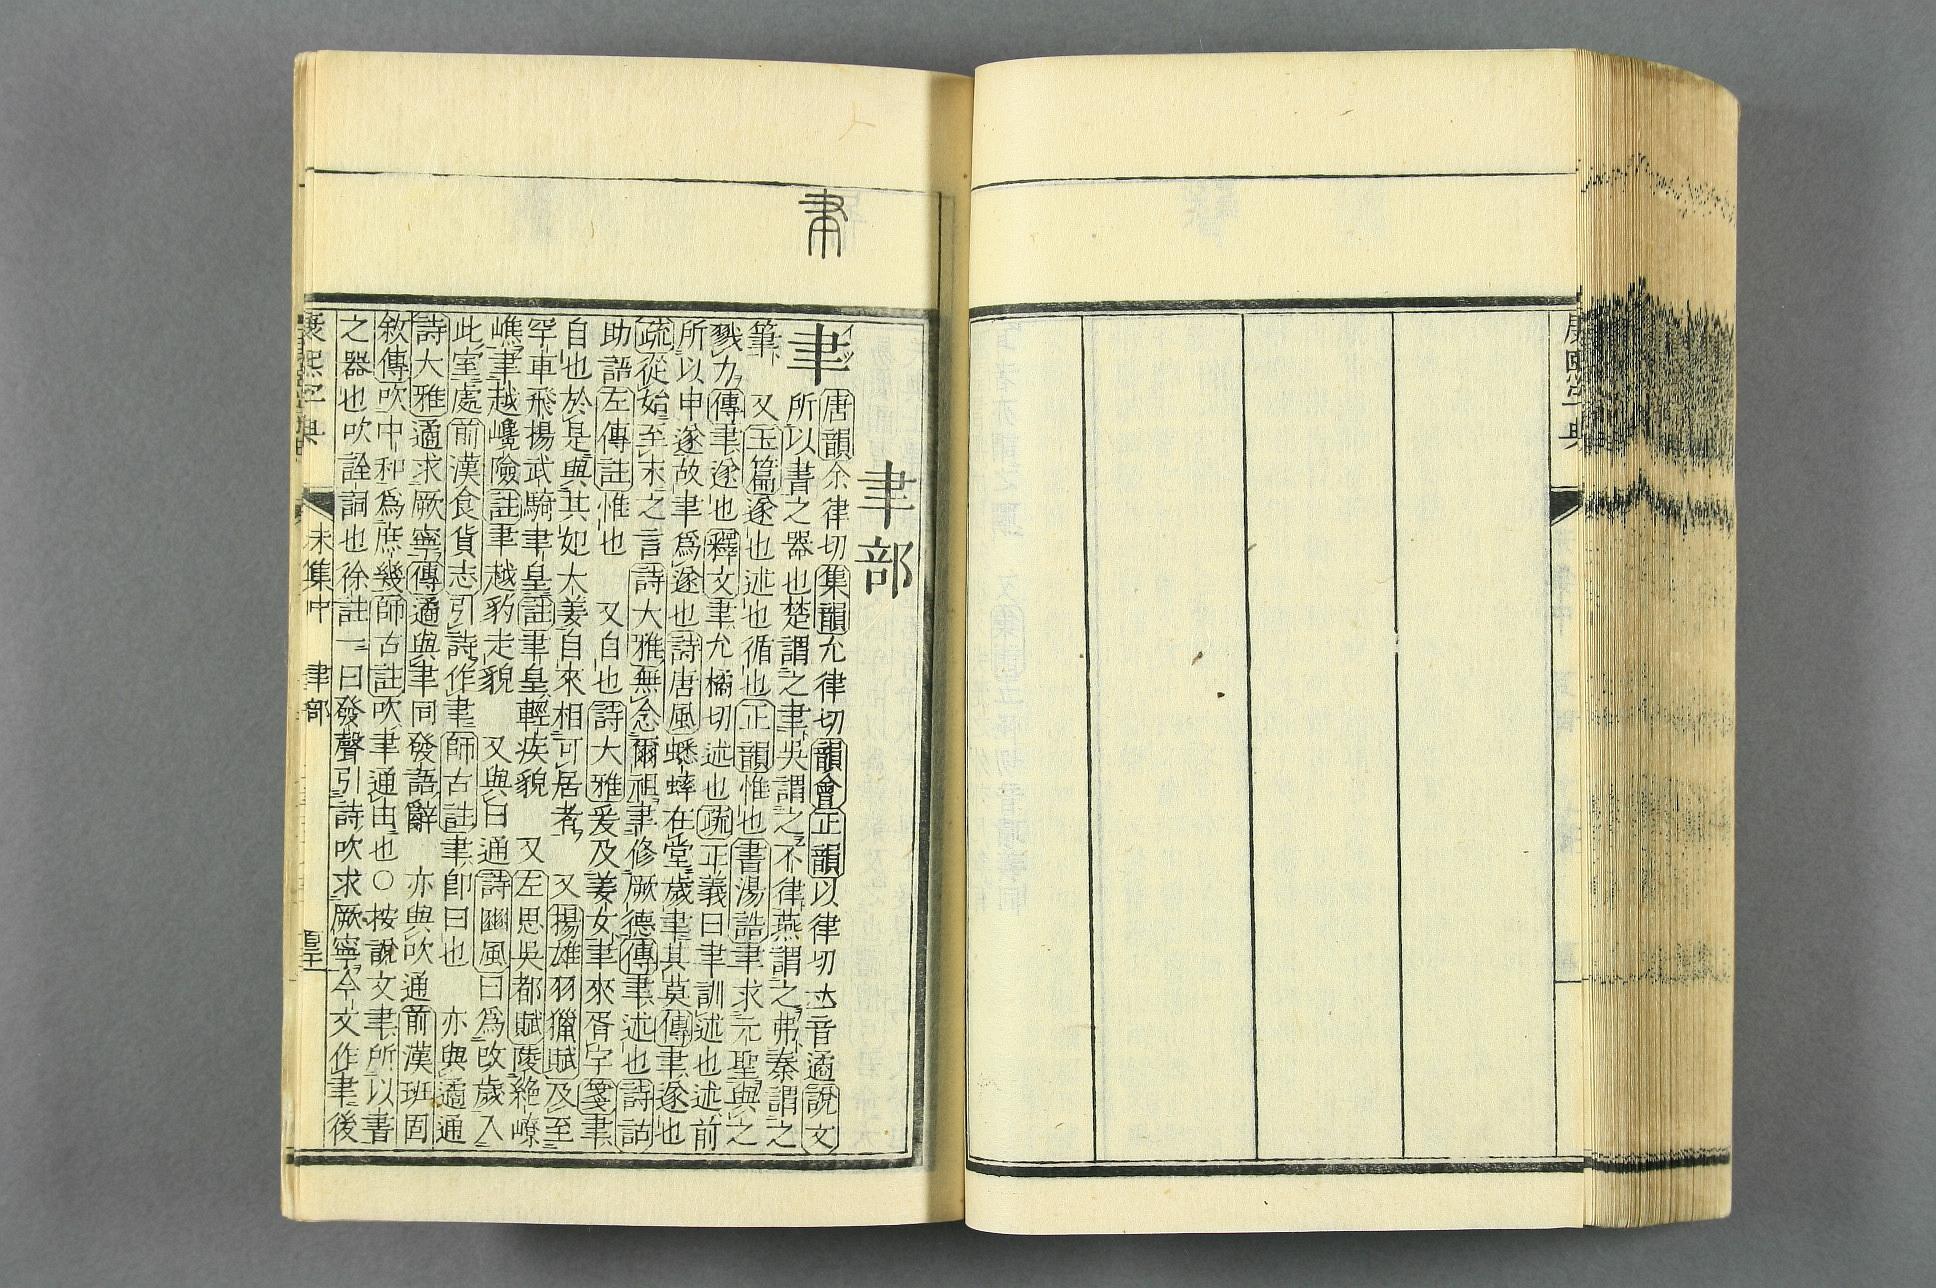 康熙字典
聿
聿部
聿
唐韻余律切集韻允律切韻會正韻以律切𠀤音遹說文
所以書之器也楚謂之聿吳謂之不律燕謂之弗秦謂之
筆 又玉篇遂也述也循也正韻惟也書湯誥聿求元聖與之
戮力傳聿遂也釋文聿允橘切述也疏正義曰聿訓述也述前
所以申遂故聿爲遂也詩唐風蟋蟀在堂歲聿其莫傳聿遂也
疏從始至末之言詩大雅無念爾祖聿修厥德傳聿述也詩詁
助語左傳註惟也 又自也詩大雅爰及姜女聿來胥宇箋聿
自也於是與其妃太姜自來相可居者 又揚雄羽獵賦及至
罕車飛揚武騎聿皇註聿皇輕疾貌 又左思吳都賦陵絶嶚
嶕聿越巉險註聿越豹走貌 又與曰通詩豳風曰爲改歲入
此室處前漢食貨志引詩作聿師古註聿卽曰也 亦與遹通
詩大雅遹求厥寧傳遹與聿同發語辭 亦與吹通前漢班固
敘傳吹中和爲庶幾師古註吹聿通由也○按說文聿所以書
之器也吹詮詞也徐註一曰發聲引詩吹求厥寧今文作聿後
康熙字典 未集中 聿部